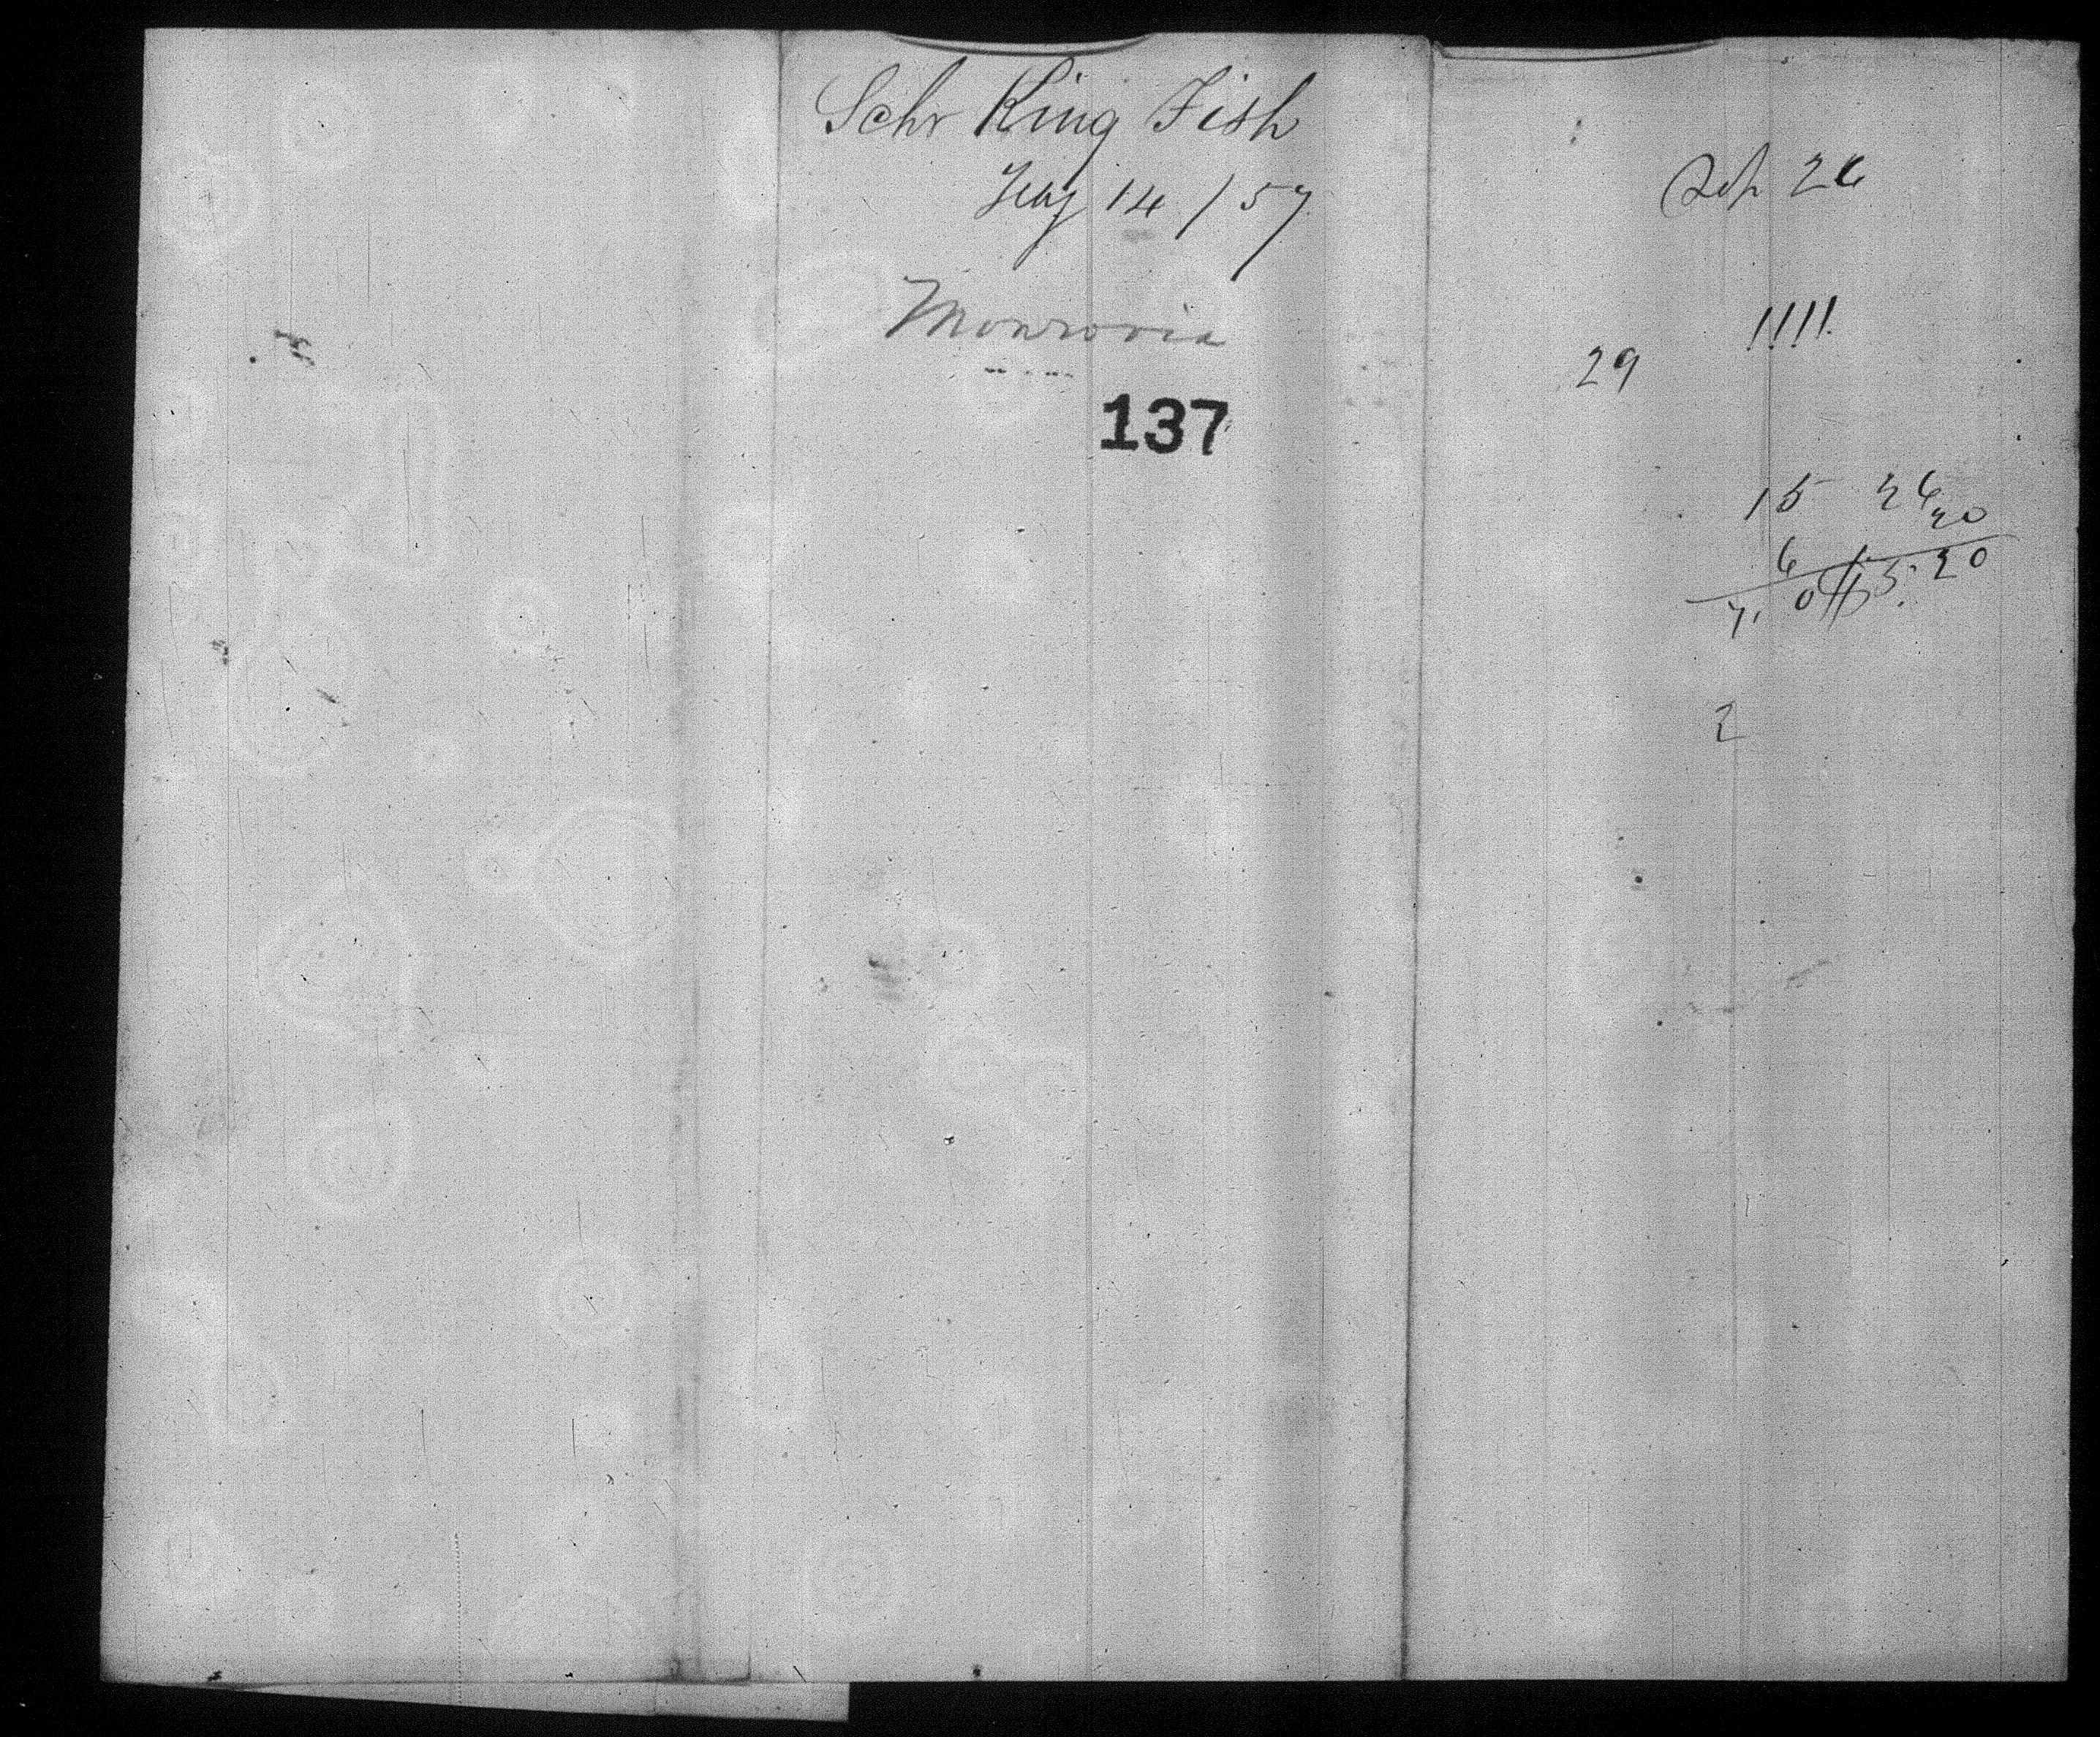 Schr King Fish
14 / 57
Monrovia
137
26
!!!!
29
15 26
20
6 $5.20
7. 0
2